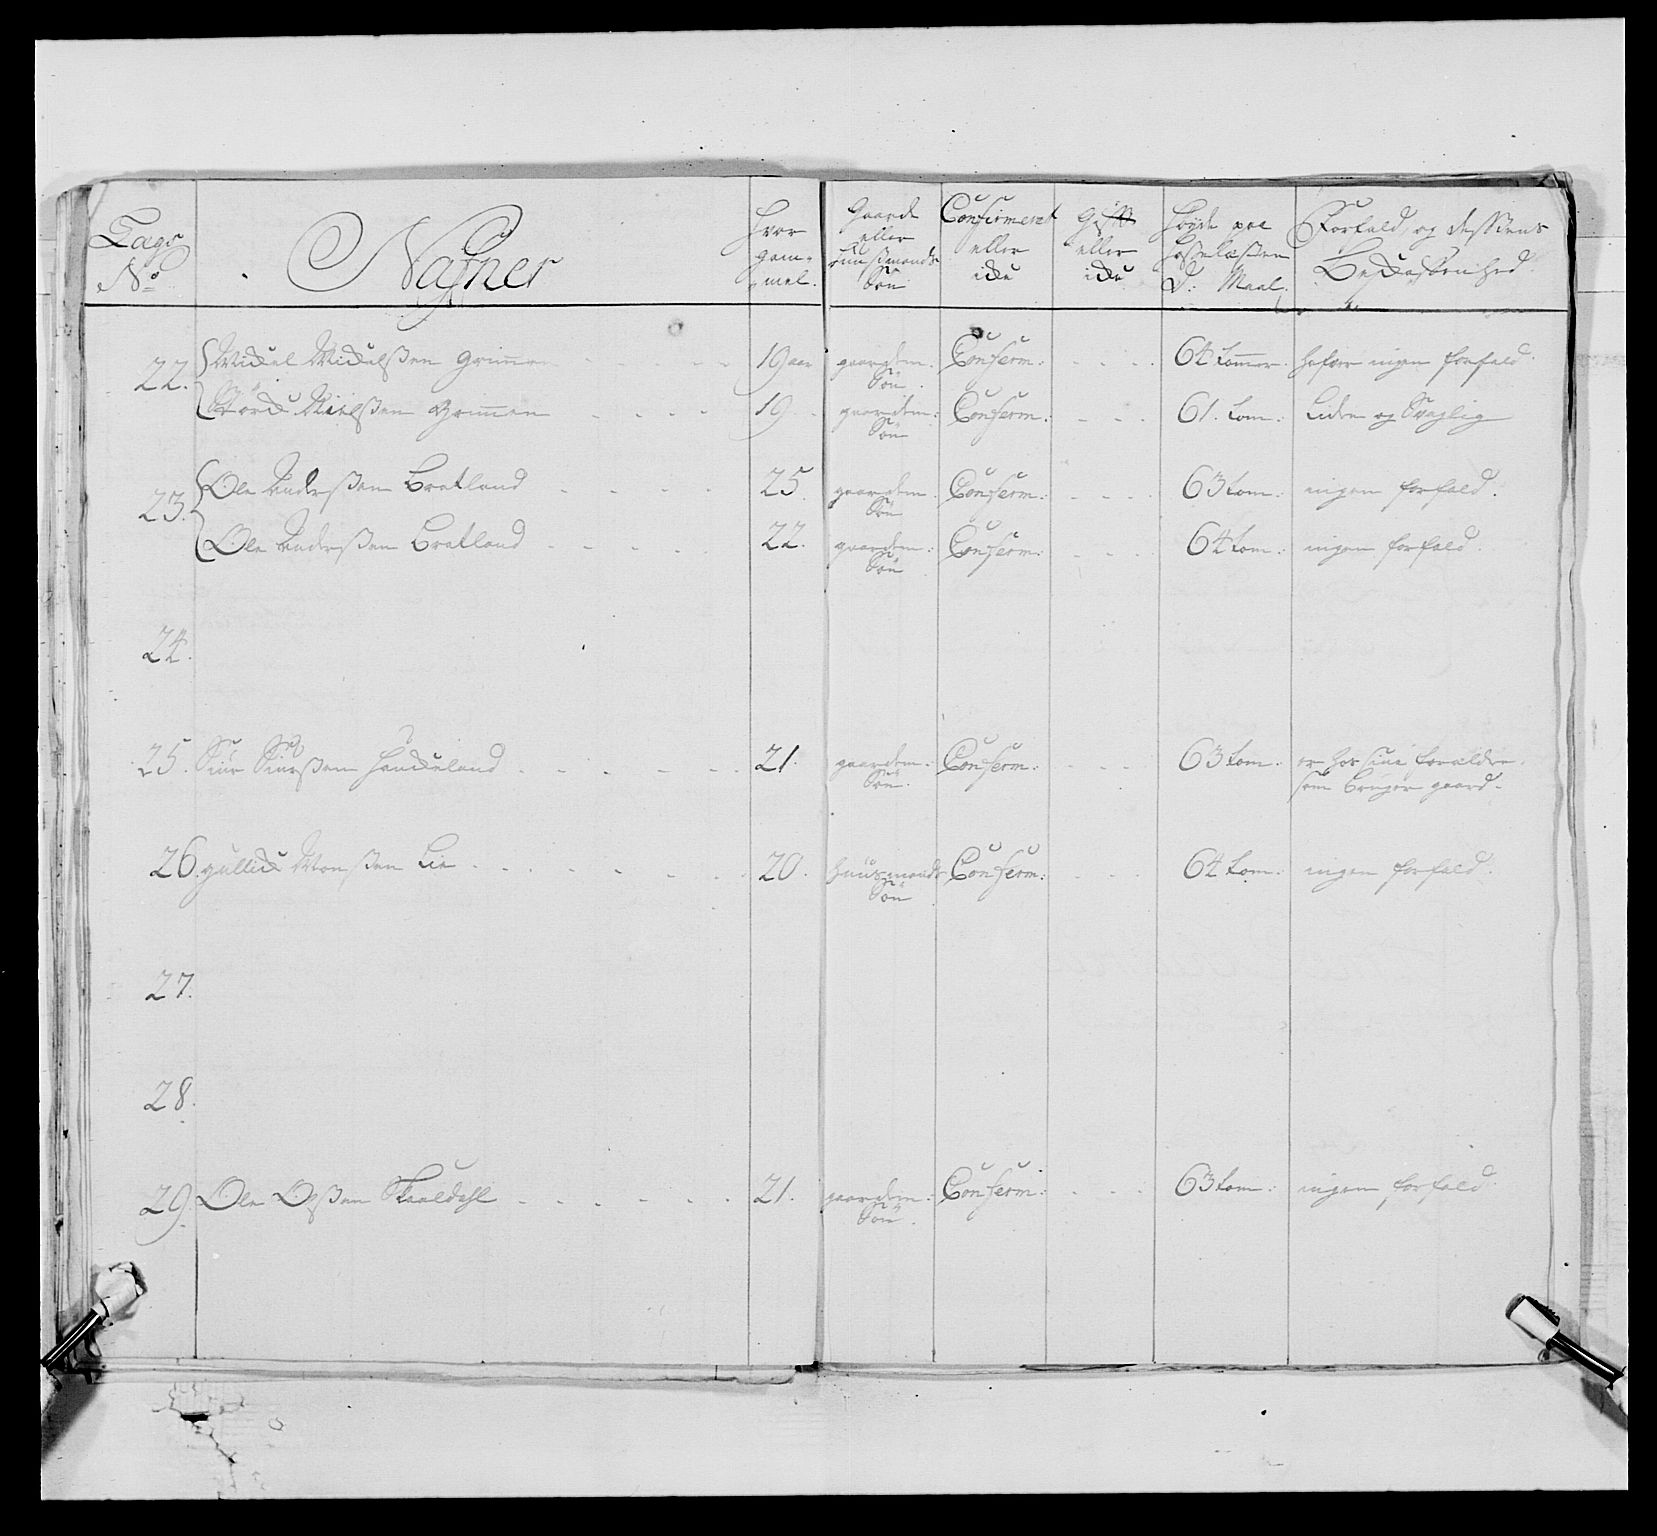 Lægs No | Nafner | Hvor gam-mel. | Gaard eller Huusmands Søn | Confirmeret eller icke | Gift eller icke | Høyde paa Hosselæsten D: Maal. | Forfald, og dessens Beskaffenhed
22. Mickel Mickelßen Grimmen | 19 aar | gaardm: Søn | Conferm: | 64 tommer: | hafver ingen forfald.
Størck Nielßen Grimmen | 19 | gaardm: Søn | Conferm: | 61. tom: | Liden og Svaglig
23. Ole Anderßen Bratland | 25. | gaardm: Søn | Conferm: | 63 tom: | ingen forfald.
Ole Anderßen Bratland | 22. | gaardm: Søn | Conferm: | 64 tom: | ingen forfald.
24.
25. Siur Siurßen Hauckeland | 21. | gaardm: Søn | Conferm: | 63 tom: | er hos sine forældre.
som bruger gaard.
26. gullick Monßen Lie | 20. | huusmands Søn | Conferm: | 64 tom: | ingen forfald.
27.
28.
29. Ole Olßen Skaaldahl | 21. | gaardm: Søn | Conferm: | 63 tom: | ingen forfald.